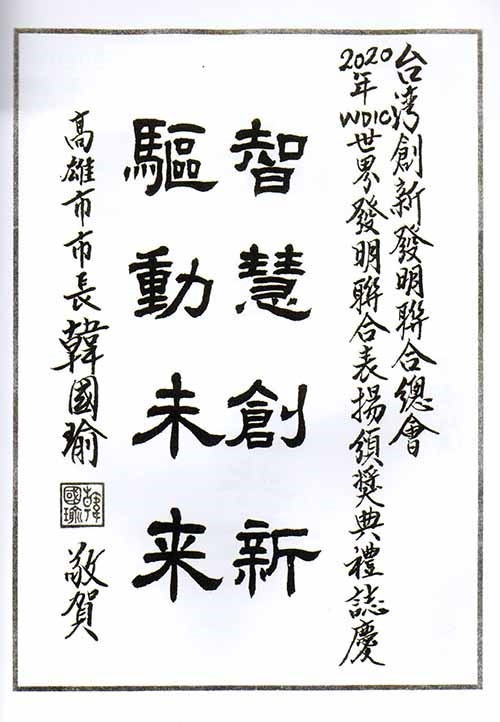 台湾創新發明聯合總會
2020年WDIC世界發明聯合表揚頒奬典禮誌慶
智慧創新
驅動未来
高雄市市長韓國瑜
韓國瑜
敬賀